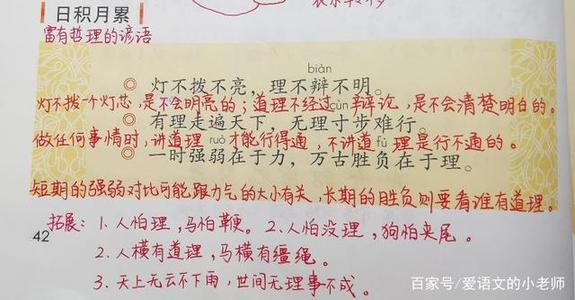 日积月累
富有哲理的谚语
biàn
灯不拨不亮，理不辩不明。
灯不拨一个灯芯，是不会明亮的；道理不经过辩论，是不会清楚明白的。
cùn
有理走遍天下，无理寸步难行。
做任何事情时，讲道理才能行得通，不讲道理是行不通的。
ruò
fù
一时强弱在于力，万古胜负在于理。
短期的强弱对比可能跟力气的大小有关，长期的胜负则要看谁有道理。
拓展：1.人怕理，马怕鞭。2.人怕没理，狗怕夹尾。
42
2.人横有道理，马横有缰绳。
3.天上无云不下雨，世间无理事不成。
百家号/爱语文的小老师